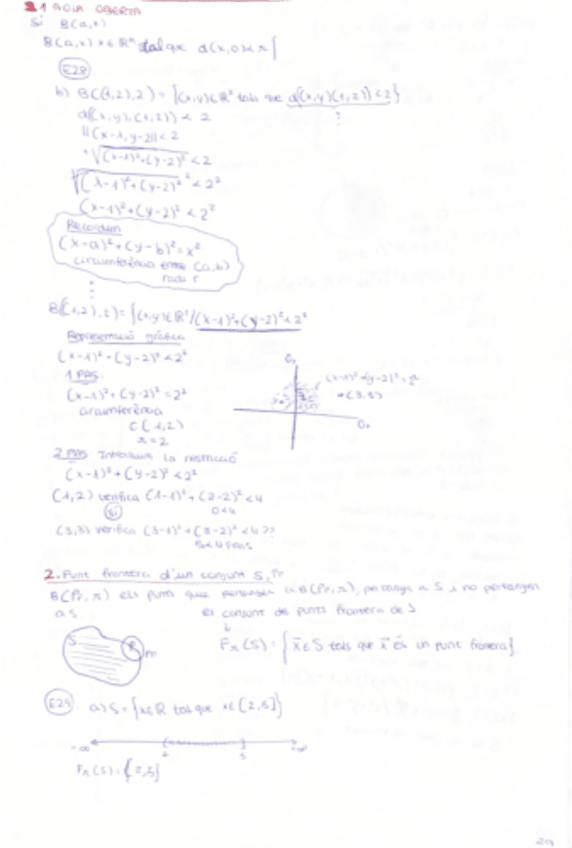 2.1 BOLA OBERTA
Si B(a,r)
B(a,r) x∈ℝⁿ tal que d(x,0)<r}
E28
b) B((1,2),2) = {(x,y)∈ℝ² tals que d((x,y)(1,2))<2}
d((x,y),(1,2)) < 2
||(x-1,y-2)|| < 2
+√(x-1)²+(y-2)² < 2
√(x-1)²+(y-2)² ² < 2²
(x-1)²+(y-2)² < 2²
Recordem
(x-a)²+(y-b)²=r²
circumferència centre (a,b)
radi r
B((1,2),2) = {(x,y)∈ℝ²/(x-1)²+(y-2)²<2²
Representació gràfica
(x-1)²+(y-2)²<2²
1 PAS:
(x-1)²+(y-2)²=2²
circumferència
C(1,2)
r=2
(x-1)²+(y-2)²=2²
•(3,3)
2 PAS: Introduïm la restricció
(x-1)²+(y-2)²<2²
(1,2) verifica (1-1)²+(2-2)²<4
Sí 0<4
(3,3) verifica (3-1)²+(3-2)²<4 ??
5<4 FALS
2. Punt frontera d'un conjunt S, Pr
B(Pr,r) els punts que pertanyen a B(Pr,r), pertanyi a S i no pertanyen
a S
el conjunt de punts frontera de S
S
Fr(S) = {x∈S tals que x és un punt frontera}
E29 a) S={x∈ℝ tal que x∈[2,5]}
-∞ 2 5 +∞
Fr(S)={2,5}
29